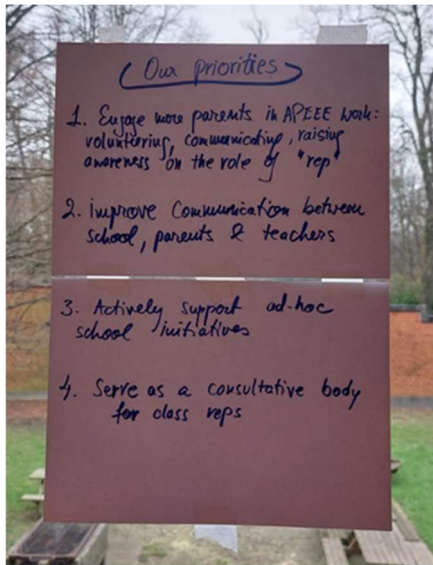 Our priorities
1. Engage more parents in APEEE work:
volunteering, communicating, raising
awareness on the role of "rep"
2. improve communication between
school, parents & teachers
3. Actively support ad-hoc
school initiatives
4. Serve as a consultative body
for class reps